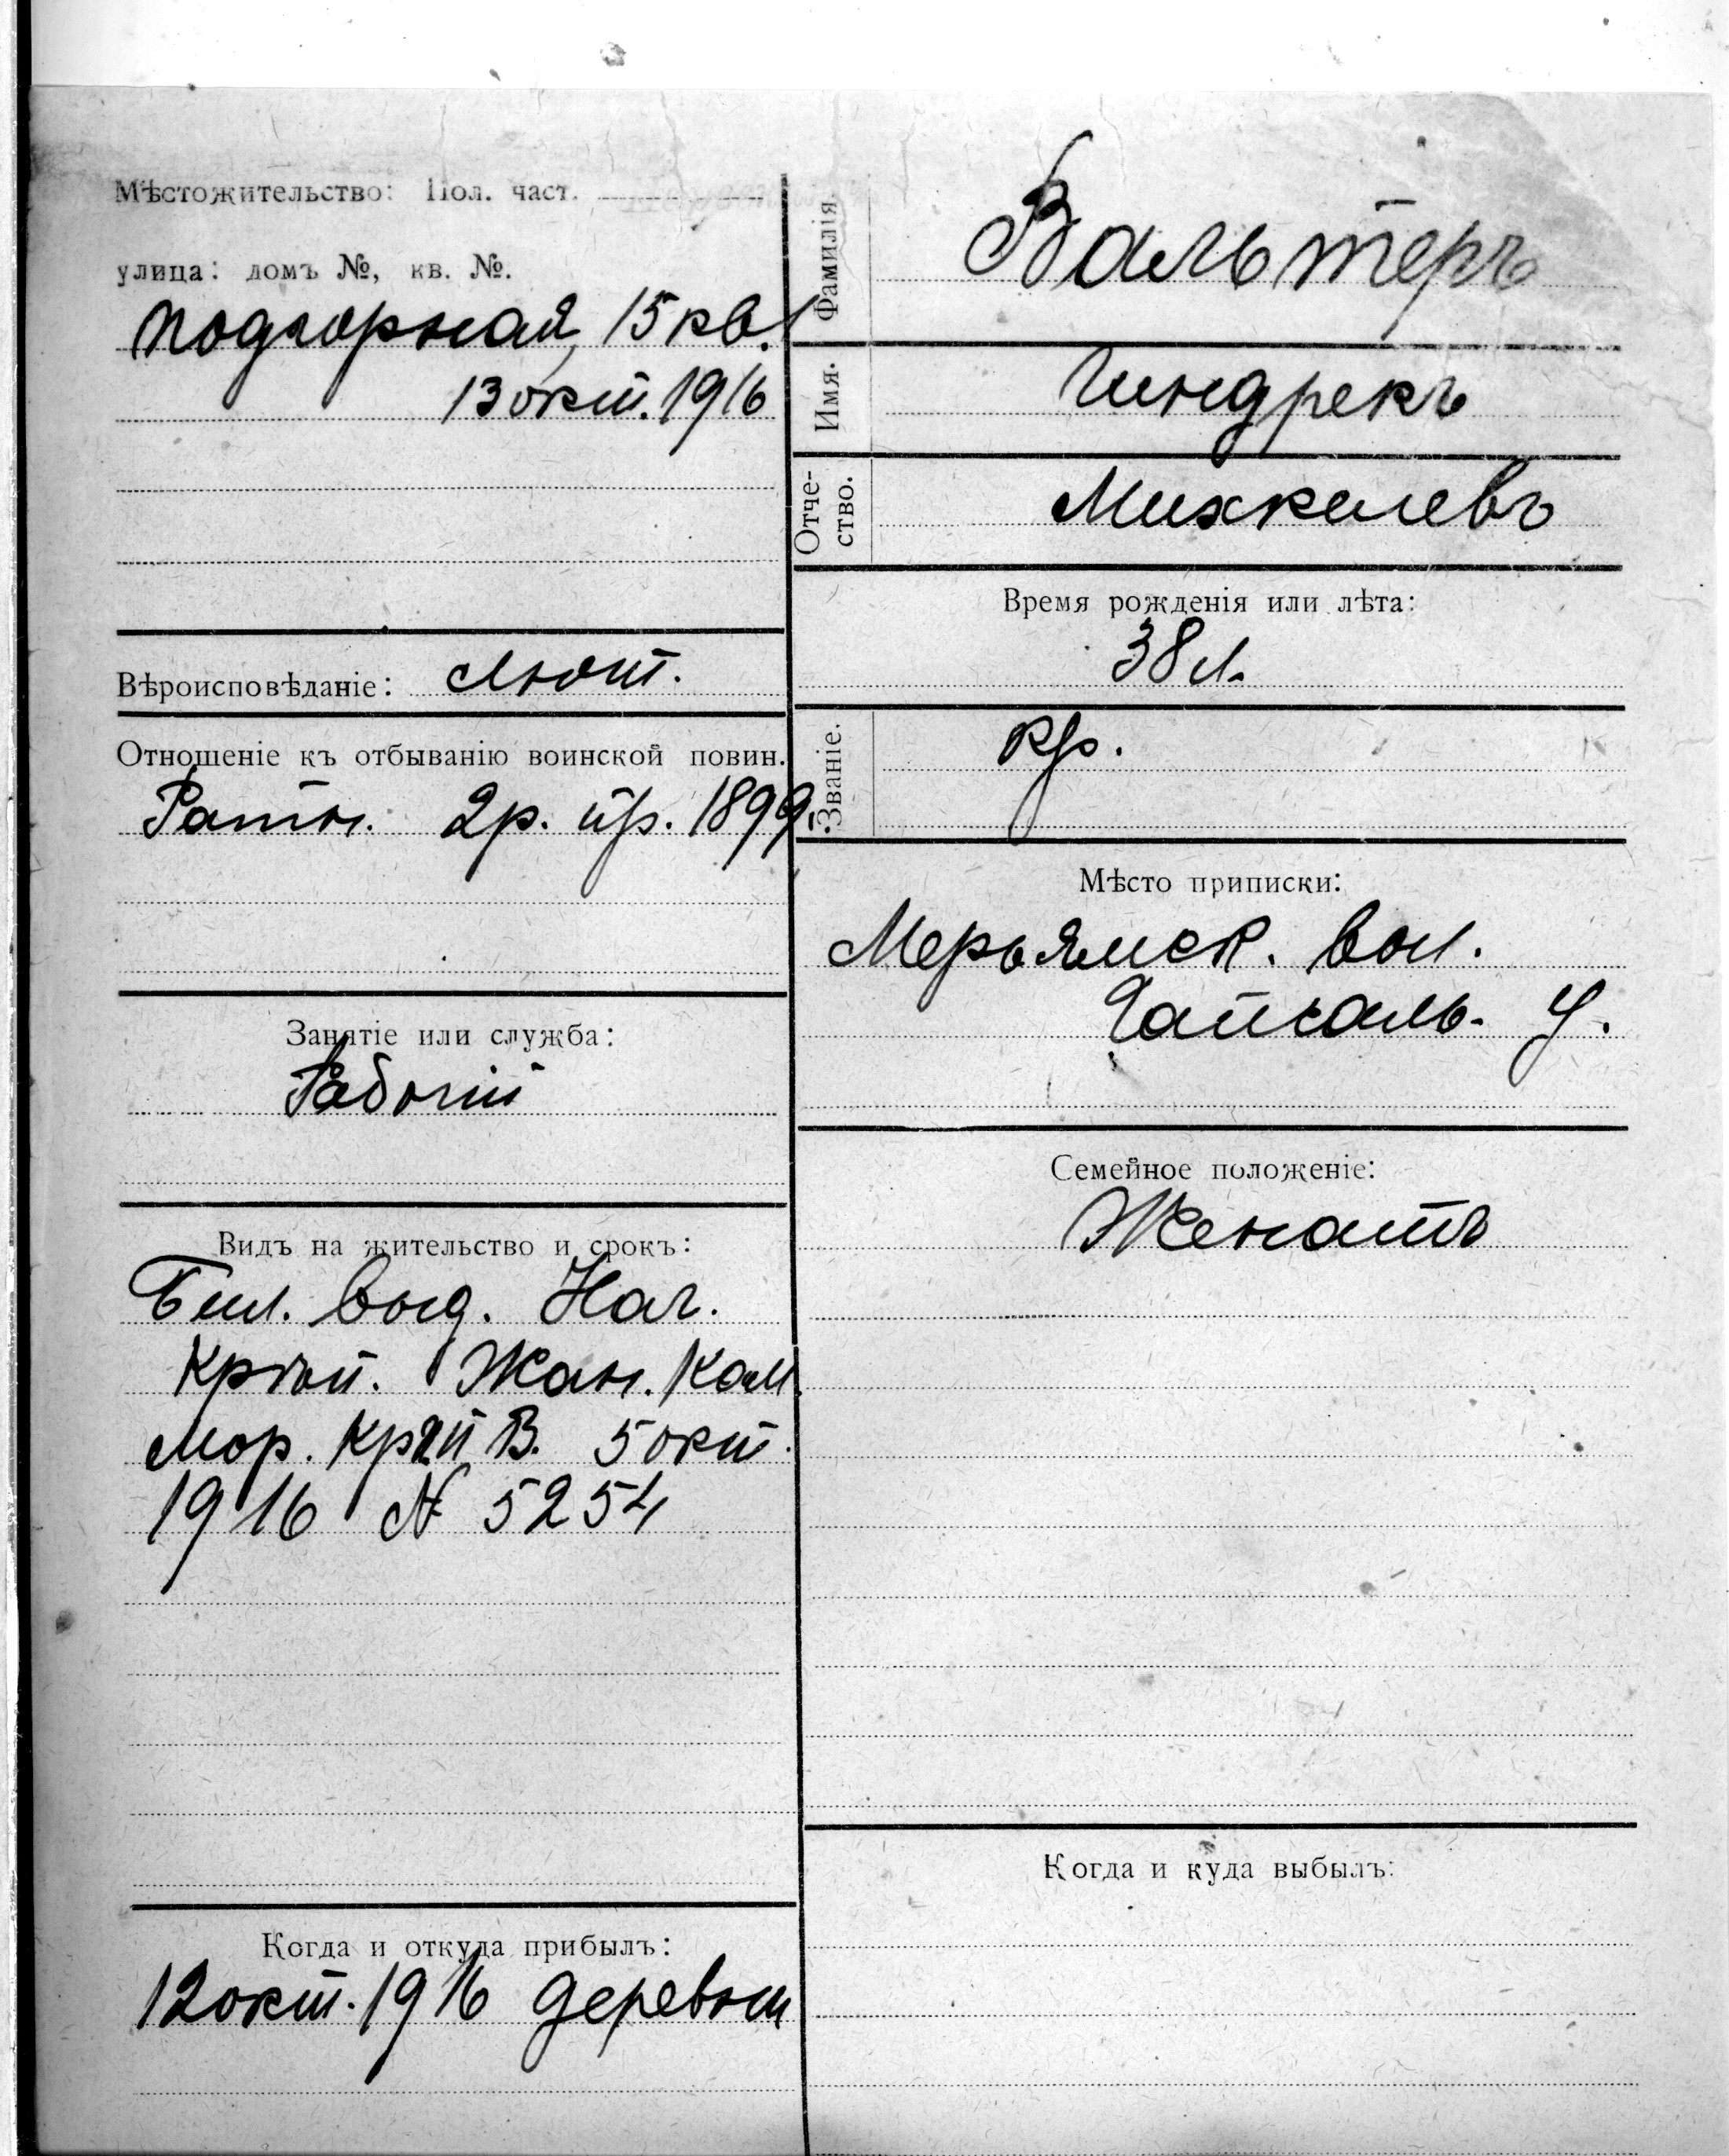 Мѣстожительство: Пол. част.
улица: домъ №, кв. №.
Подгорная, 15 кв. 1
13 окт. 1916
Вѣроисповѣданіе: Лют.
Отношеніе къ отбыванію воинской повин.
Ратн. 2 р. пр. 1899 г.
Занятіе или служба:
Рабочій
Видъ на жительство и срокъ:
Бил. выд. Нач.
Крѣп. Жан. Ком.
Мор. Крѣп. В. 5 окт.
1916 № 5254
Когда и откуда прибылъ:
12 окт. 1916 деревни
Фамилія
Вальтеръ
Имя.
Гиндрекъ
Отче-
ство.
Михкелевъ
Время рожденія или лѣта:
38 л.
Званіе.
кр.
Мѣсто приписки:
Мерьямск. вол.
Гапсаль. у.
Семейное положеніе:
Женатъ
Когда и куда выбылъ: